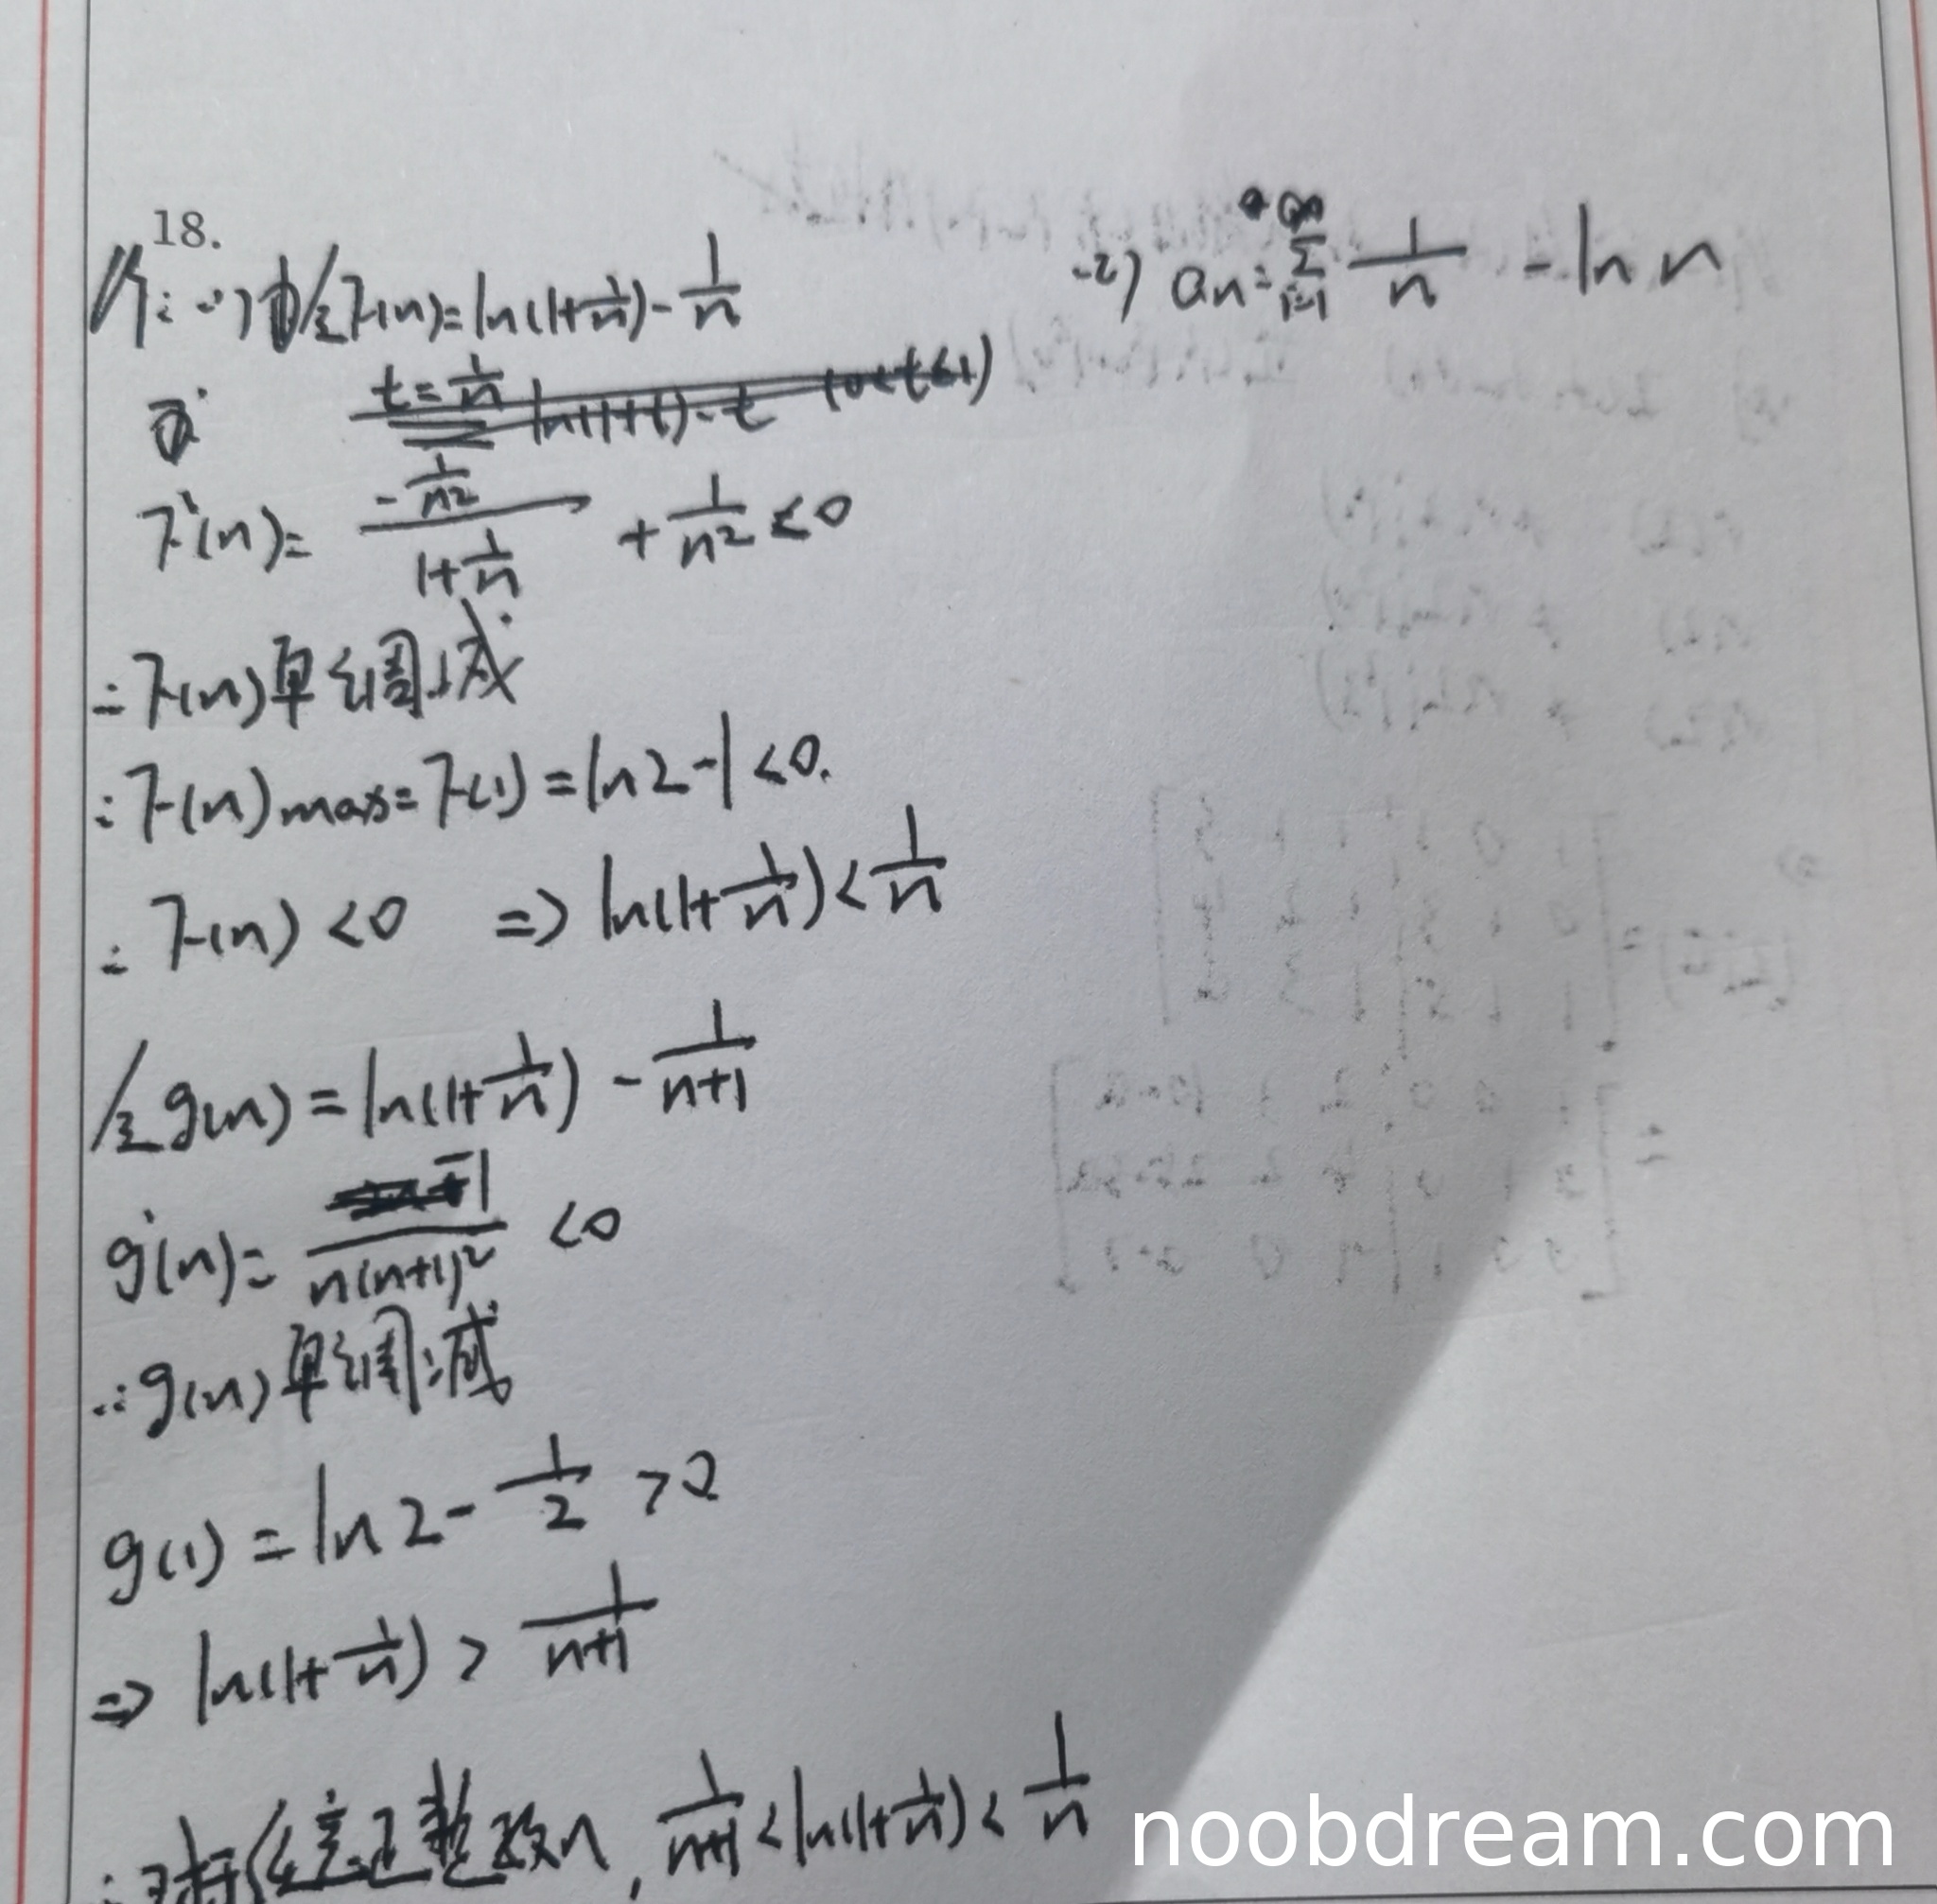 18.
(1) 令F(n)=ln(1+1/n)-1/n
t=1/n ln(1+t)-t (0<t≤1)
F'(n)= (-1/n²)/(1+1/n) + 1/n² <0
∴F(n)单调减
∴F(n)max=F(1)=ln2-1<0.
∴F(n)<0 ⇒ ln(1+1/n)<1/n
令g(n)=ln(1+1/n)-1/(n+1)
g'(n)= -1/(n(n+1)²) <0
∴g(n)单调减
g(1)=ln2-1/2>0
⇒ ln(1+1/n)>1/(n+1)
∴对任意正整数n, 1/(n+1)<ln(1+1/n)<1/n
(2) an=Σ i=1 1/n -ln n
noobdream.com